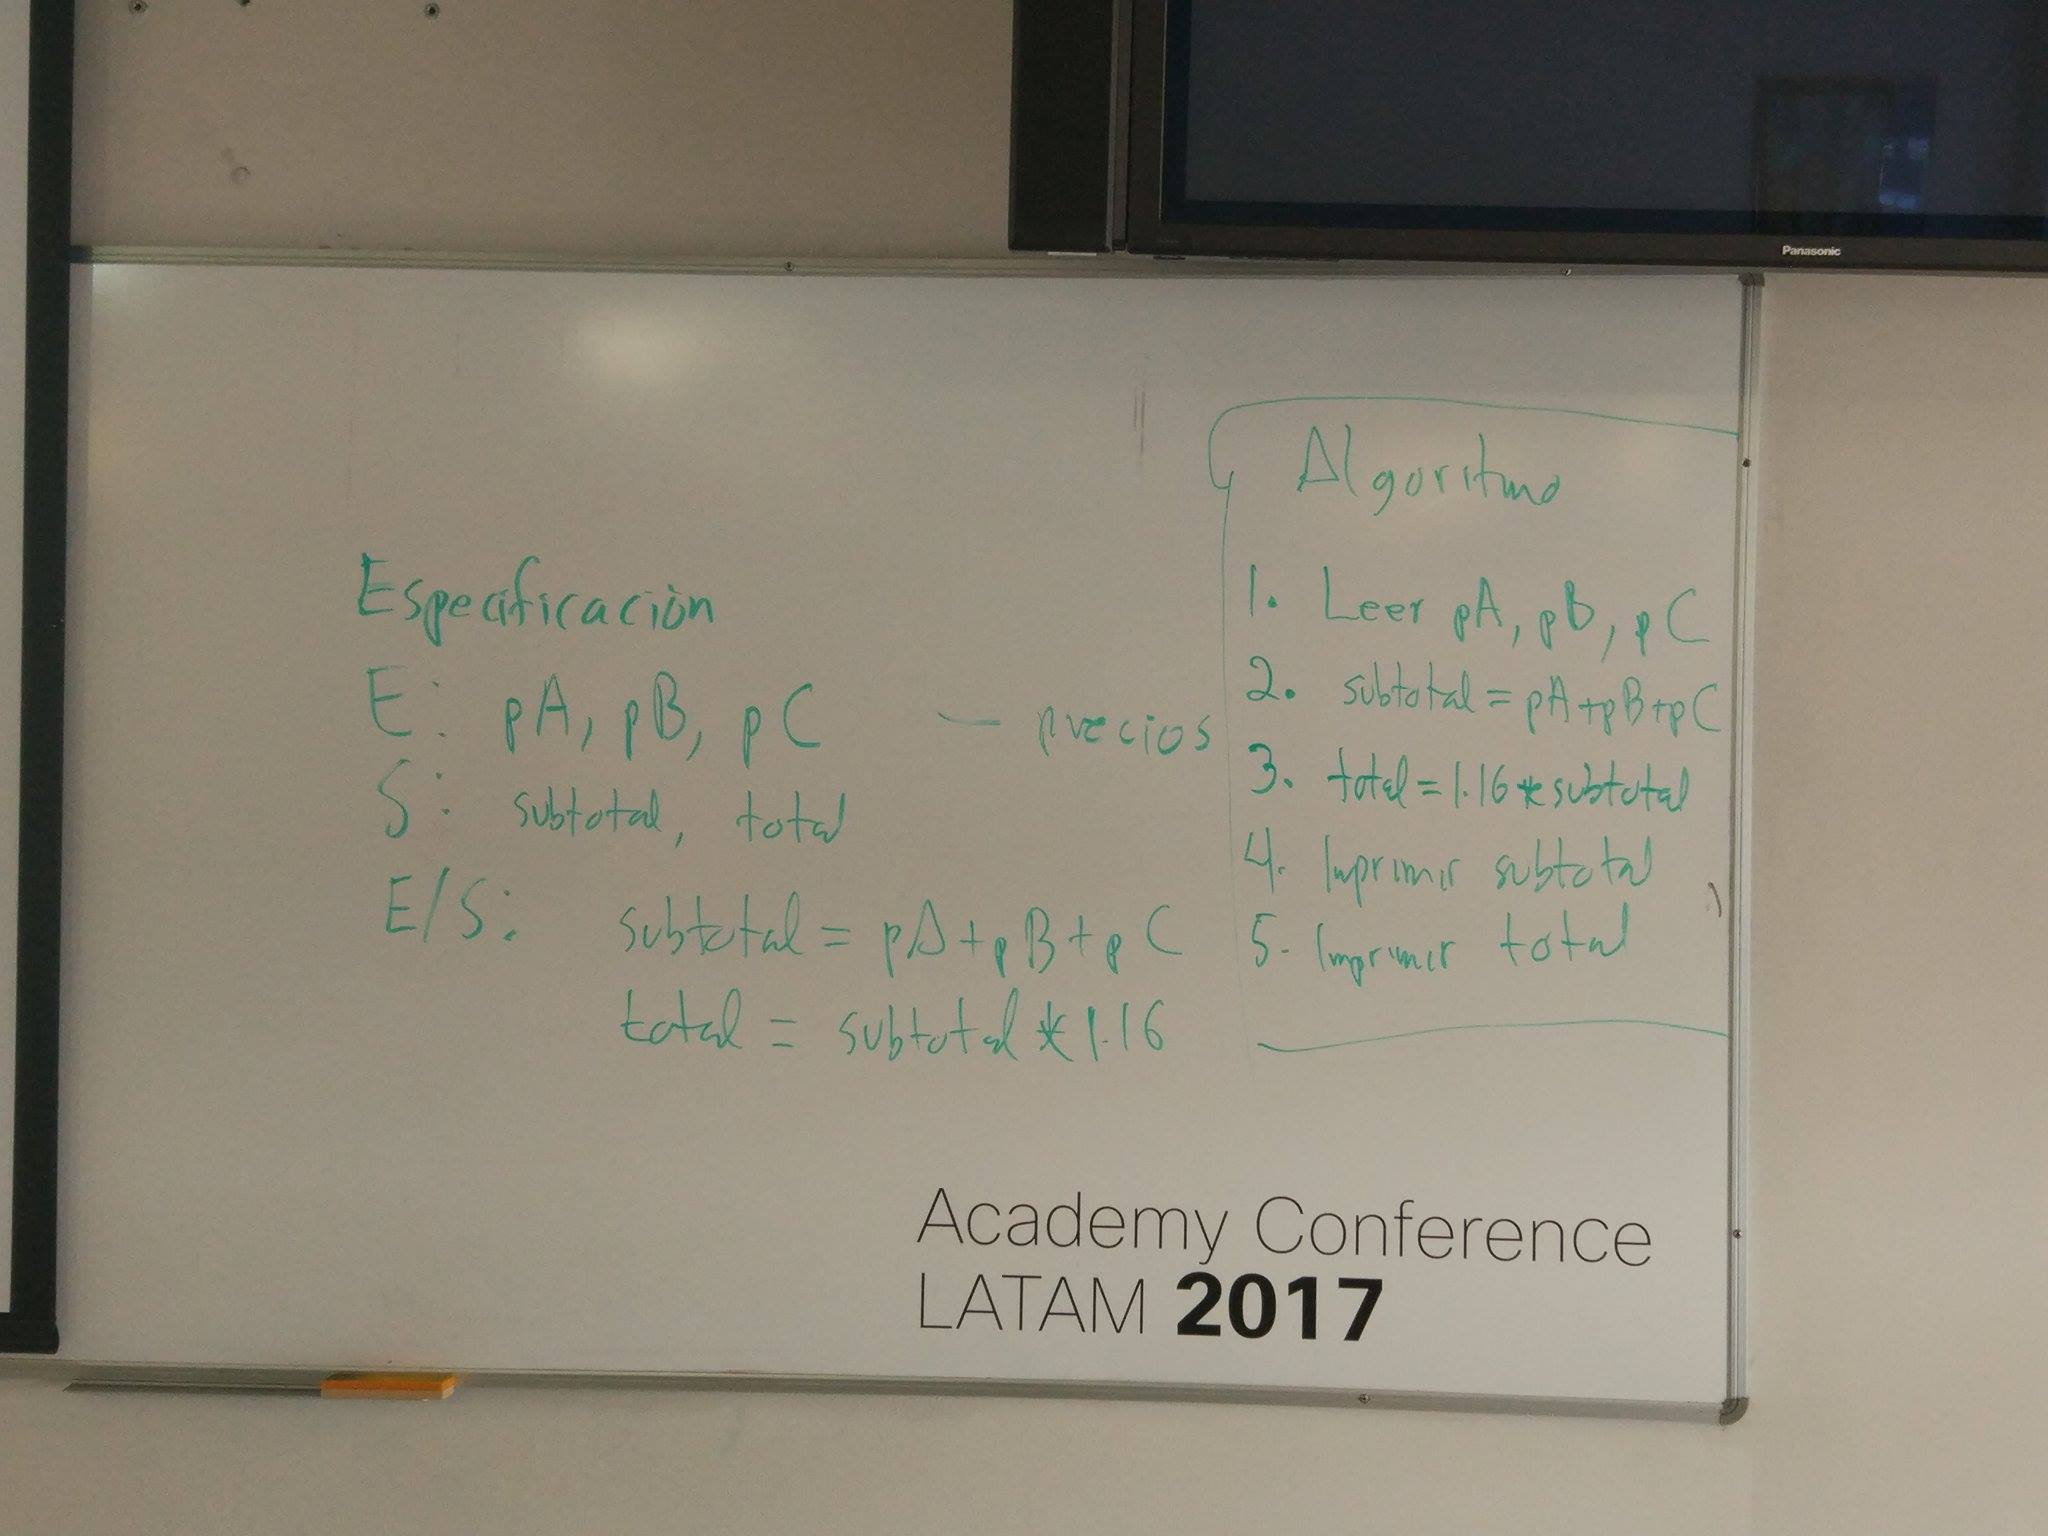 Panasonic
Especificación
E: pA, pB, pC — precios
S: subtotal, total
E/S: subtotal = pA+pB+pC
total = subtotal * 1.16
Algoritmo
1. Leer pA, pB, pC
2. subtotal = pA+pB+pC
3. total = 1.16 * subtotal
4. Imprimir subtotal
5. Imprimir total
Academy Conference
LATAM 2017